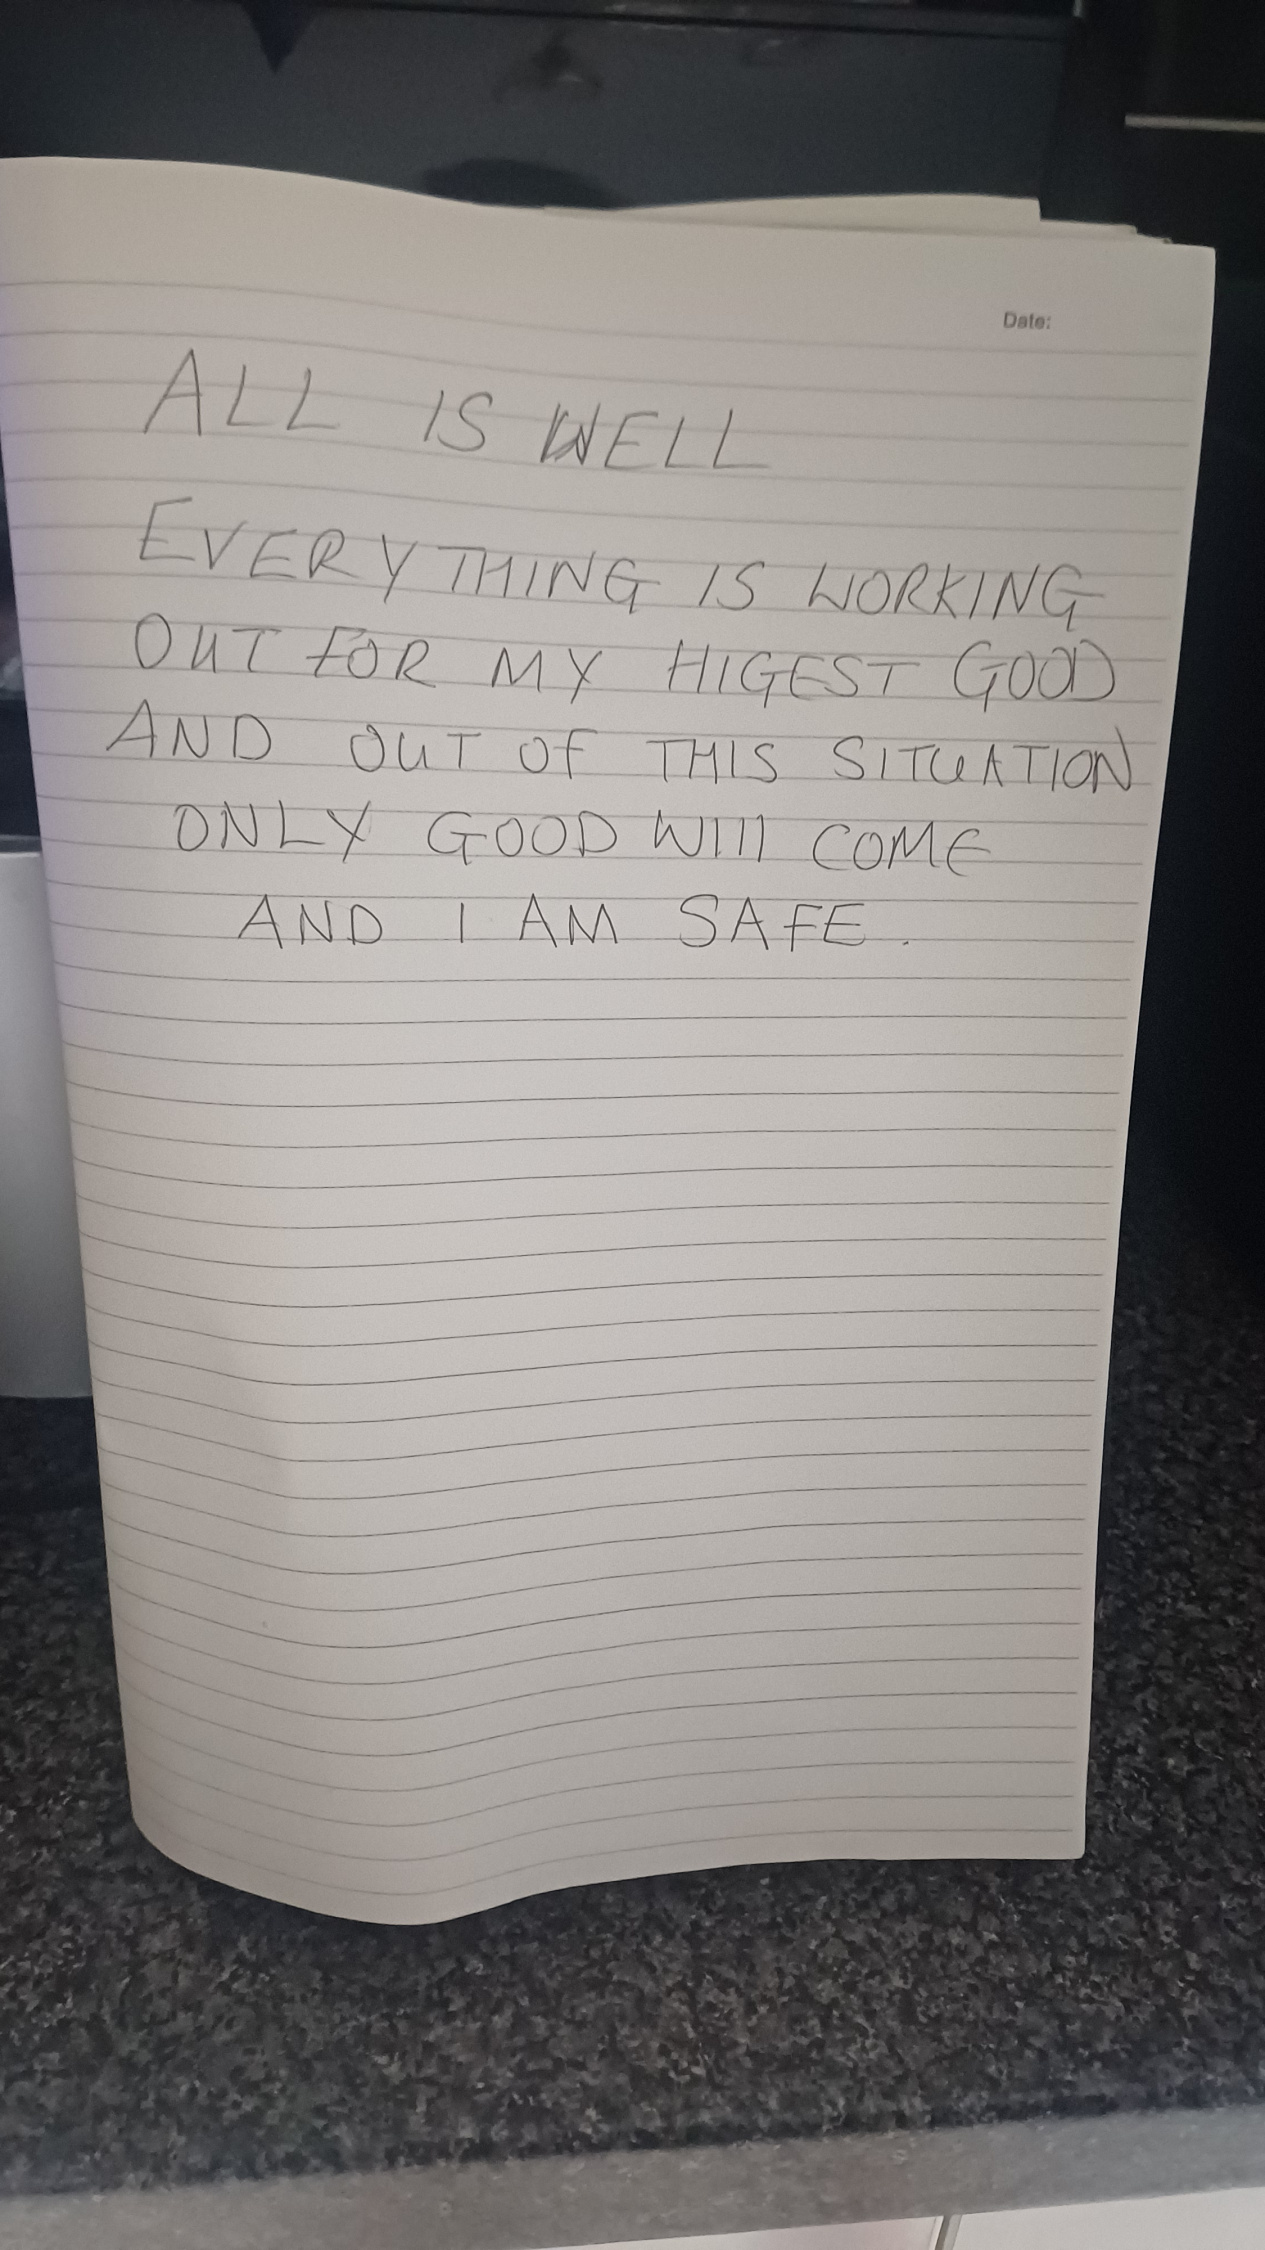 Date:
ALL IS WELL
EVERYTHING IS WORKING
OUT FOR MY HIGEST GOOD
AND OUT OF THIS SITUATION
ONLY GOOD WIll COME
AND I AM SAFE.